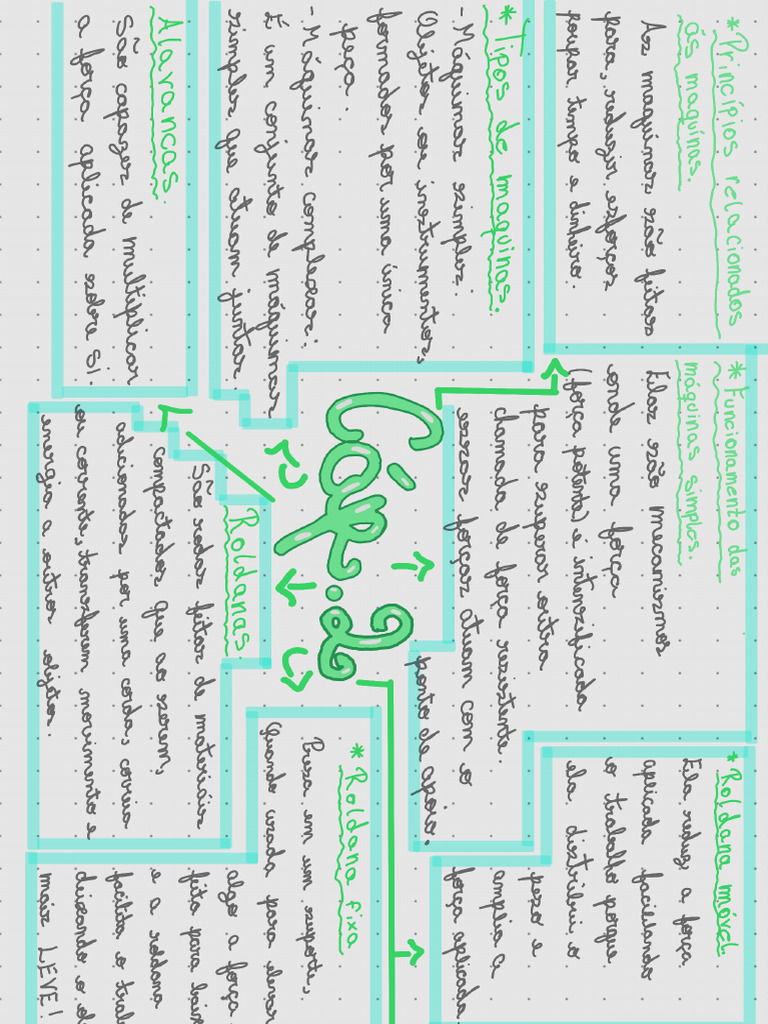 *Princípios relacionados
ás maquinas.
As maquinas são feitas
para, reduzir esforços
poupar tempo e dinheiro.
*Tipos de maquinas.
-Máquinas simples:
Objetos ou instrumentos,
formados por uma única
peça.
-Máquinas complexas:
É um conjunto de máquinas
simples que atuam juntas
Alavancas
São capazes de multiplicar
a força aplicada sobre si.
*Funcionamento das
máquinas simples.
Elas são mecanismos
onde uma força
(força potente) é intensificada
para superar outra
chamada de força resistente.
essas forças atuam com o
ponto de apoio.
Cáp. 2
Roldanas.
São rodas feitas de materiais
compactados que ao serem,
adicionados por uma corda, correia
ou corrente, transferem movimento e
energia a outros objetos.
*Roldana móvel.
Ela reduz, a força
aplicada facilitando
o trabalho porque
ela distribui o
peso e
amplia a
força aplicada
*Roldana fixa
Presa em um suporte,
Quando usada para elevar
algo a força
feita para baix
e a roldana
facilita o trab
deixando o ob
mais LEVE!